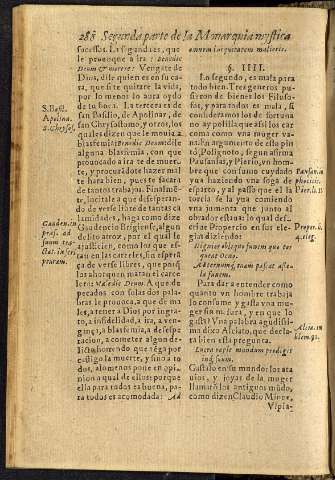 286 Segunda parte de la Monarquia mystica
sucessos. La segunda es, que
le prouoque a ira : Benedic
Deum & morere: Vengate de
Dios, dile quien es en su ca-
ra, que si te quitare la vida,
por lo menos lo aura oydo
de tu boca. La tercera es de
san Basilio, de Apolinar, de
san Chrysostomo, y otros, los
quales dizen que le mouia a
blasfemia: Benedic Deum: dile
alguna blasfemia, con que
prouocado a ira te de muer-
te, y procurádote hazer mal
te hara bien, pues te sacara
de tantos trabajos. Finalmē-
te, incitale a que desesperan-
do de verse libre de tantas ca
lamidades, haga como dize
Gaudencio Brigiense, algun
delito atroz, por el qual le
ajusticien, como los que es-
tan en las carceles, sin esperã
ça de verse libres, que ponē
los ahorquen matan el carce
lero: Maledic Deum. A que de
pecados con solas dos pala-
bras le prouoca, a que de ma
les, a tener a Dios por ingra-
to, a infidelidad, a ira, a ven-
gança, a blasfemia, a desespe
racion, a cometer algun de-
licto horrendo que téga por
castigo la muerte, y sino a to
dos, alomenos pone en opi-
nion a qual de ellos: porque
ella para todos es buena, por
para todos es acomodada: Ad
S. Basil.
Apolina.
omnem iniquitatem mulieris.
§. IIII.
Lo segundo, es mala para
todo bien. Tres generos pu-
sieron de bienes los Filoso-
fos, y para todos es mala, si
consideramos los de fortuna
no ay polilla que assi los car
coma como vna muger va-
na. En argumento de esto pin
tò Polignoto, segun afirma
Pausanias, y Pierio, vn hom-
bre que con sumo cuydado
yua haziendo vna soga de
esparto, y al passo que el la
torcia se la yua comiendo
vna jumenta que junto al
obrador estaua: lo qual des-
criue Propercio en sus ele-
gias diziendo:
Para dar a entender como
quanto vn hombre trabaja
lo consume y gasta vna mu-
ger sin mas, y en que lo
gasta? Vna palabra agudissi-
ma dixo Alciato, que decla-
ra bien ella pregunta.
Gastalo en su mundo: los ata
uios, y joyas de la muger
llamaron los antiguos mũdo,
como dizen Claudio Minos,
Vlpia-